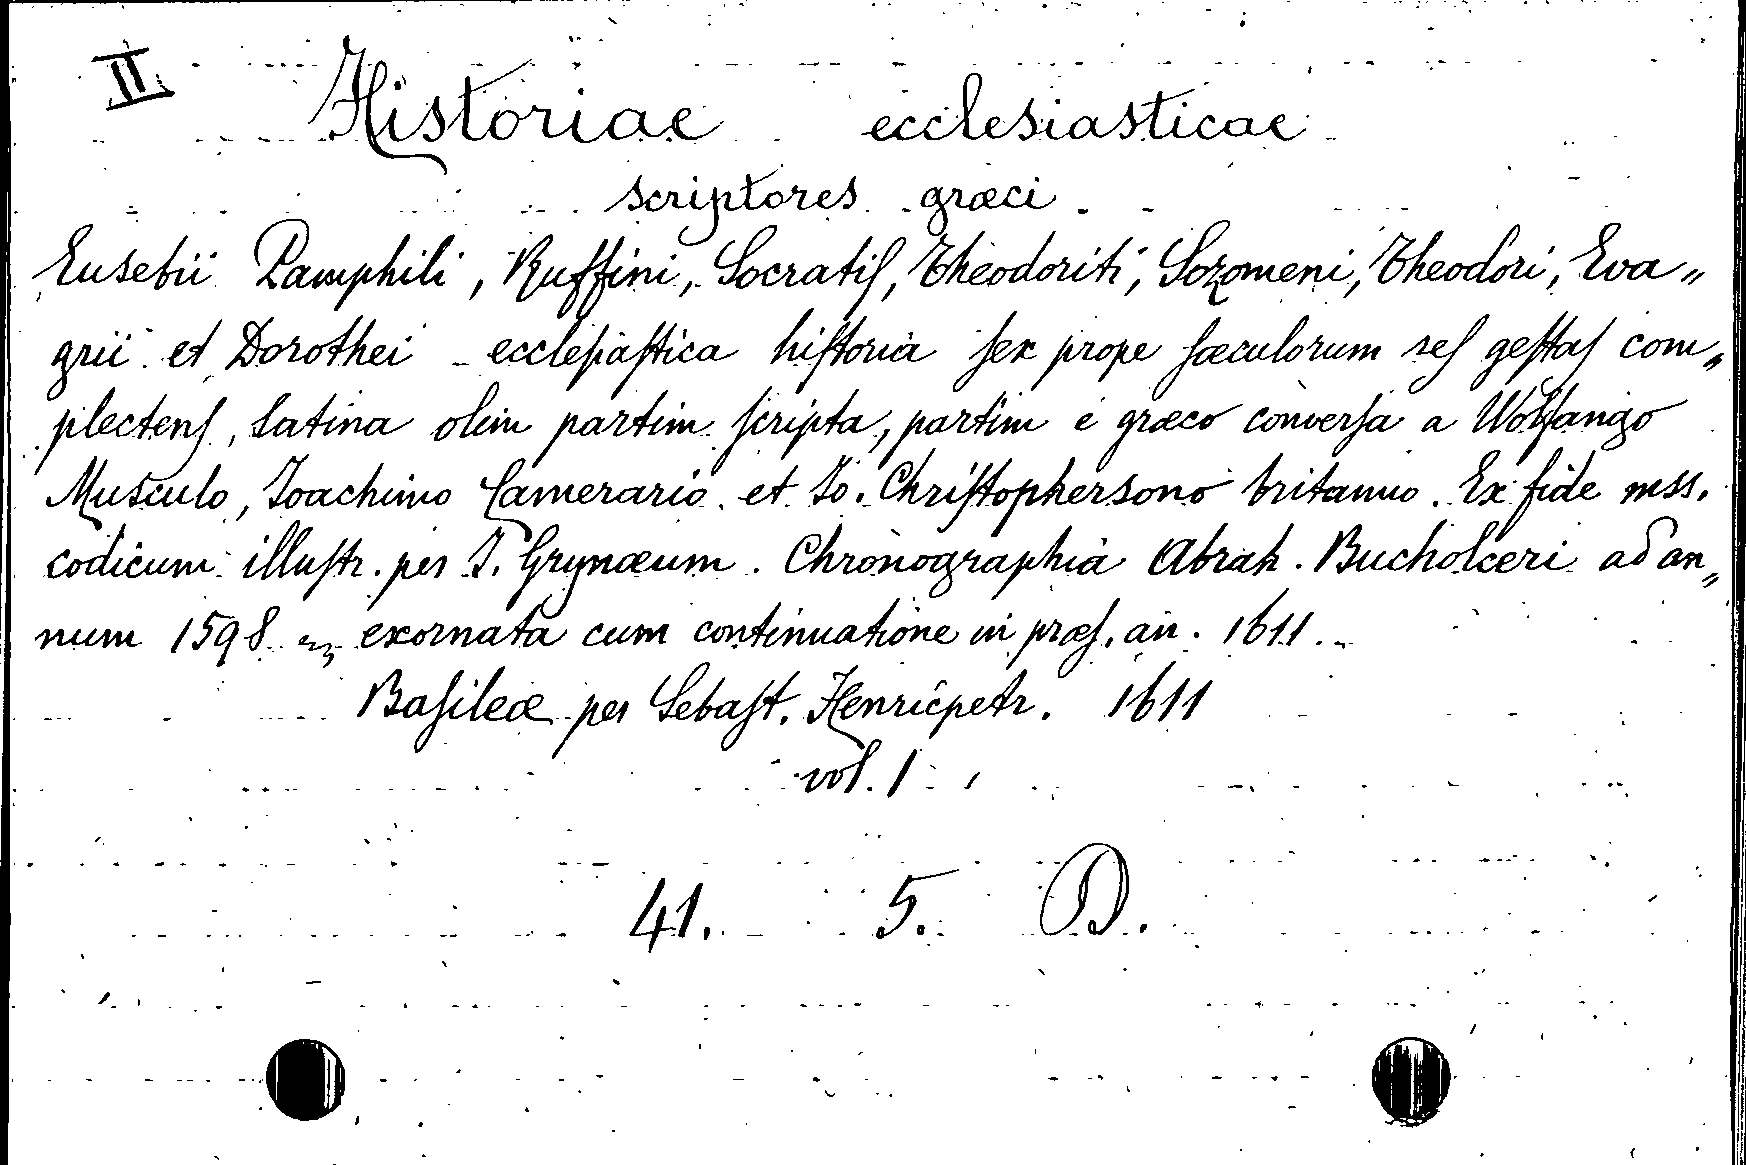 II
Historiae ecclesiasticae
scriptores græci
Eusebii Pamphili, Ruffini, Socratiſ, Theodoriti, Sozomeni, Theodori, Eva„
grii et Dorothei ecclesiaſtica hiſtoria ſex prope ſæculorum reſ geſtaſ com„
plectenſ, latina olim partim ſcripta, partim e græco converſa a Wolfango
Musculo, Joachimo Camerario et Jo. Chriſtophersono britanno. Ex fide mss.
codicum illuſtr. per J. Grynæum. Chronographia Abrah. Bucholceri ad an„
num 1598 exornata cum continuatione in præſ. an. 1611.
Baſileæ per Sebaſt. Henricpetr. 1611
vol. 1
41. 5. D.